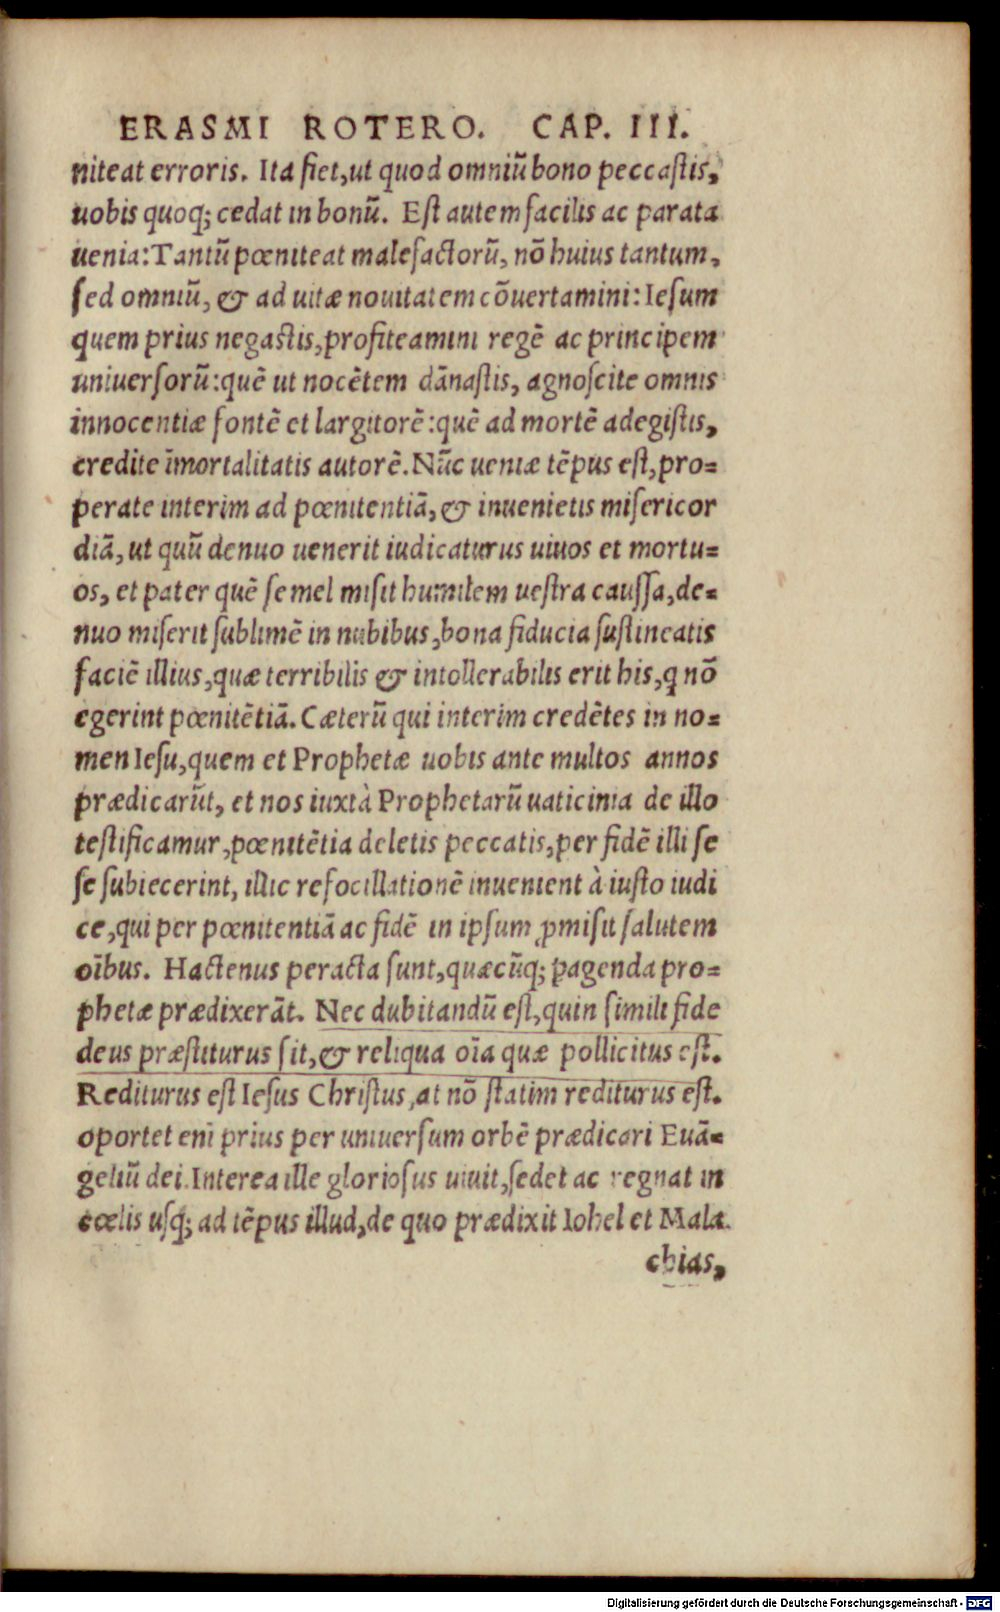 ERASMI ROTERO. CAP. III.
niteat erroris. Ita fiet,ut quod omniũ bono peccaſtis,
uobis quoq; cedat in bonũ. Eſt autem facilis ac parata
uenia:Tantũ pœniteat malefactorũ, nõ huius tantum,
ſed omniũ, & ad uitæ nouitatem cõuertamini:Ieſum
quem prius negaſtis,profiteamini regẽ ac principem
uniuerſorũ:quẽ ut nocẽtem dãnaſtis, agnoſcite omnis
innocentiæ fontẽ et largitorẽ:quẽ ad mortẽ adegiſtis,
credite ĩmortalitatis autorẽ. Nũc ueniæ tẽpus eſt,pro=
perate interim ad pœnitentiã, & inuenietis miſericor
diã, ut quũ denuo uenerit iudicaturus uiuos et mortu=
os, et pater quẽ ſemel miſit humilem ueſtra cauſſa,de=
nuo miſerit ſublimẽ in nubibus,bona fiducia ſuſtineatis
faciẽ illius,quæ terribilis & intollerabilis erit his,q nõ
egerint pœnitẽtiã. Cæterũ qui interim credẽtes in no=
men Ieſu,quem et Prophetæ uobis ante multos annos
prædicarũt, et nos iuxtà Prophetarũ uaticinia de illo
teſtificamur,pœnitẽtia deletis peccatis,per fidẽ illi ſe
ſe ſubiecerint, illic refocillationẽ inuenient à iuſto iudi
ce,qui per pœnitentiã ac fidẽ in ipſum ꝓmiſit ſalutem
oĩbus. Hactenus peracta ſunt,quæcũq; ꝑagenda pro=
phetæ prædixerãt. Nec dubitandũ eſt,quin ſimili fide
deus præſtiturus ſit,& reliqua oĩa quæ pollicitus eſt.
Rediturus eſt Ieſus Chriſtus,at nõ ſtatim rediturus eſt.
oportet enĩ prius per uniuerſum orbẽ prædicari Euã=
geliũ dei.Interea ille glorioſus uiuit,ſedet ac regnat in
cœlis uſq; ad tẽpus illud,de quo prædixit Iohel et Mala
chias,
Digitalisierung gefördert durch die Deutsche Forschungsgemeinschaft - DFG